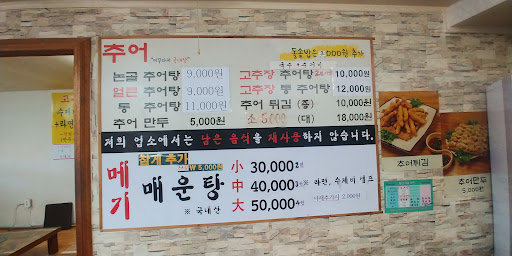 추어
돌솥밥은 3,000원 추가
논골 추어탕 9,000원
얼큰 추어탕 9,000원
통 추어탕 11,000원
추어 만두 5,000원
고추장 추어탕 10,000원
고추장 통 추어탕 12,000원
추어 튀김 (중) 10,000원
(대) 18,000원
저희 업소에서는 남은 음식을 재사용하지 않습니다.
메기
참게 추가
₩ 5,000원
매운탕
※ 국내산
小 30,000
中 40,000
大 50,000
※ 라면, 수제비 셀프
2,000원
추어튀김
추어만두
5,000원